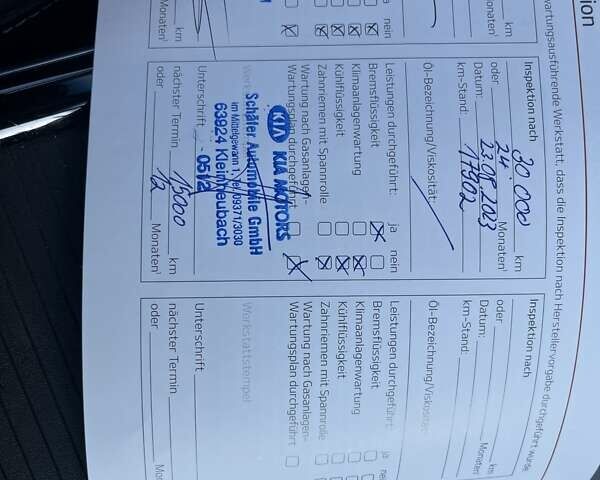 ion
wartungsausführende Werkstatt, dass die Inspektion nach Herstellervorgabe durchgeführt wurde
km
Monaten¹
ja nein
km
Monaten¹
Inspektion nach
30.000 km
oder 24 Monaten¹
Datum: 23.08.2023
km-Stand: 17902
Öl-Bezeichnung/Viskosität:
Leistungen durchgeführt: ja nein
Bremsflüssigkeit
Klimaanlagenwartung
Kühlflüssigkeit
Zahnriemen mit Spannrolle
Wartung nach Gasanlagen-
Wartungsplan durchgeführt
KIA KIA MOTORS
Schäfer Automobile GmbH
im Mittelgewann 1, Tel. 09371/3030
63924 Kleinheubach
0512
Unterschrift
nächster Termin 15000 km
oder 12 Monaten¹
Inspektion nach
km
oder Monaten
Datum:
km-Stand:
Öl-Bezeichnung/Viskosität:
Leistungen durchgeführt: ja
Bremsflüssigkeit
Klimaanlagenwartung
Kühlflüssigkeit
Zahnriemen mit Spannrolle
Wartung nach Gasanlagen-
Wartungsplan durchgeführt
Werkstattstempel
Unterschrift
nächster Termin
oder